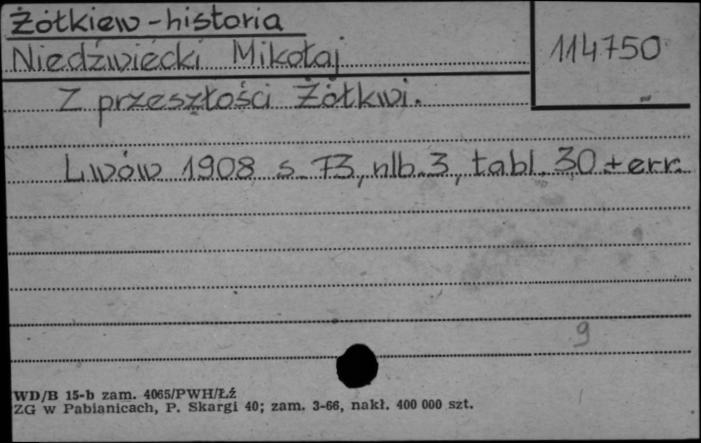 Żółkiew - historia
Niedźwiecki Mikołaj
114750
Z przeszłości Żółkwi.
Lwów 1908 s. 73, nlb. 3, tabl. 30 + err.
9
WD/B 15-b zam. 4065/PWH/Łź
ZG w Pabianicach, P. Skargi 40; zam. 3-66, nakł. 400 000 szt.